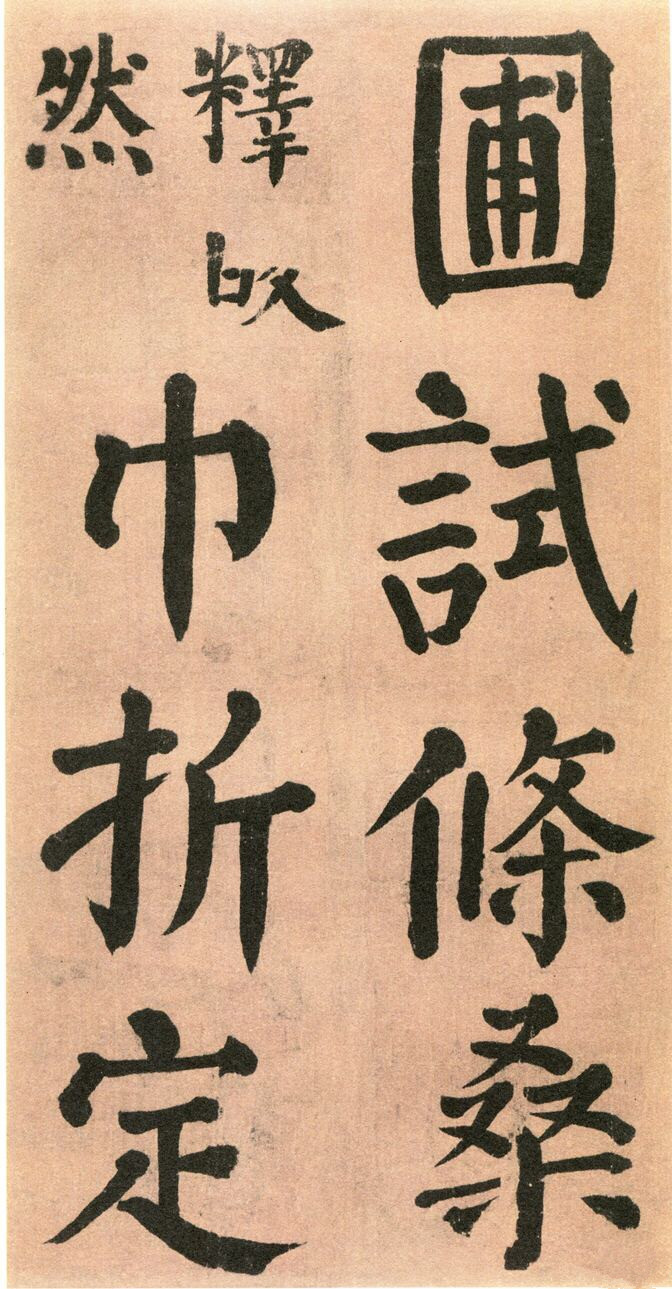 圃試條桑
釋皎
然
巾折定